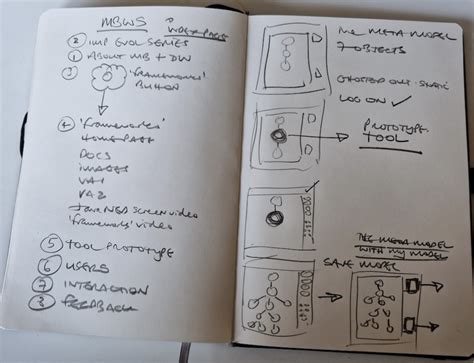 MBWS
WEB PAGE
② IMP EVOL SERIES
① ABOUT MB + DW
③ 'frameworks'
BUTTON
④ 'frameworks'
HOME PAGE
DOCS
IMAGES
VA1
VA2
SCREEN VIDEO
'frameworks' VIDEO
⑤ TOOL PROTOTYPE
⑥ USERS
⑦ INTERACTION
⑧ FEEDBACK
META MODEL
7 OBJECTS
GHOSTED OUT - STATIC
LOG ON ✓
PROTOTYPE
TOOL
META MODEL
WITH MY MODEL
SAVE MODEL